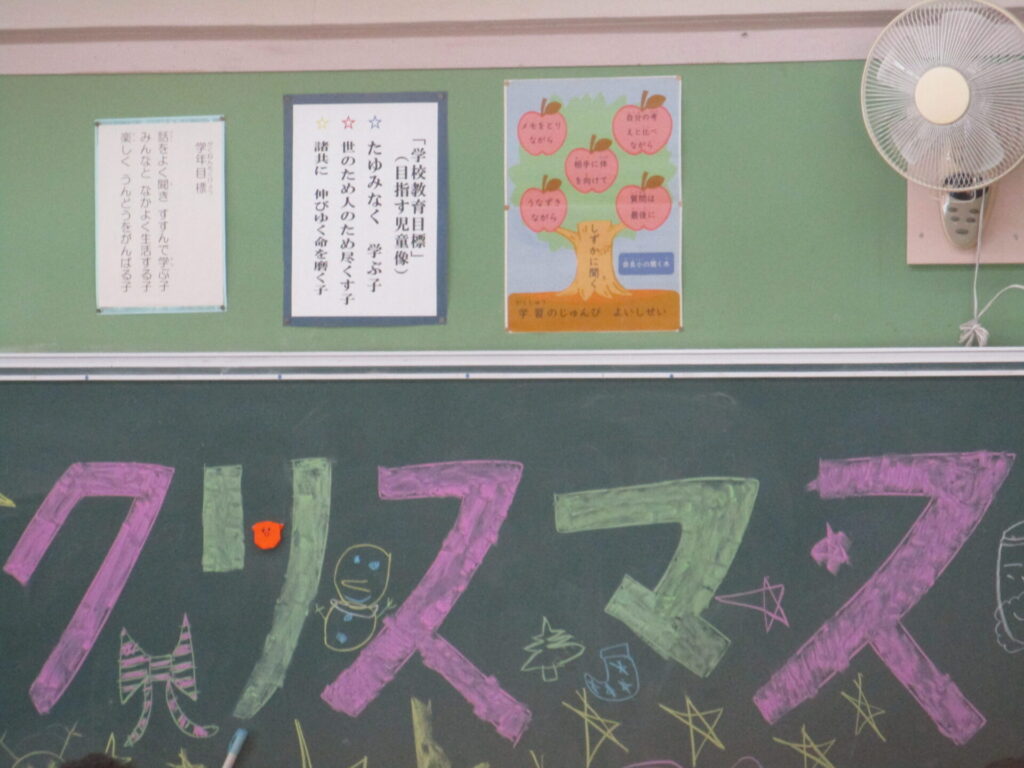 学年目標
話をよく聞き すすんで学ぶ子
みんなと なかよく生活する子
楽しく うんどうをがんばる子
「学校教育目標」
（目指す児童像）
☆ たゆみなく 学ぶ子
☆ 世のため人のため尽くす子
☆ 諸共に 伸びゆく命を磨く子
メモをとり
ながら
自分の考
えと比べ
ながら
相手に体
を向けて
うなずき
ながら
質問は
最後に
しずかに聞く
小の聞く木
学習のじゅんび よいしせい
クリスマス